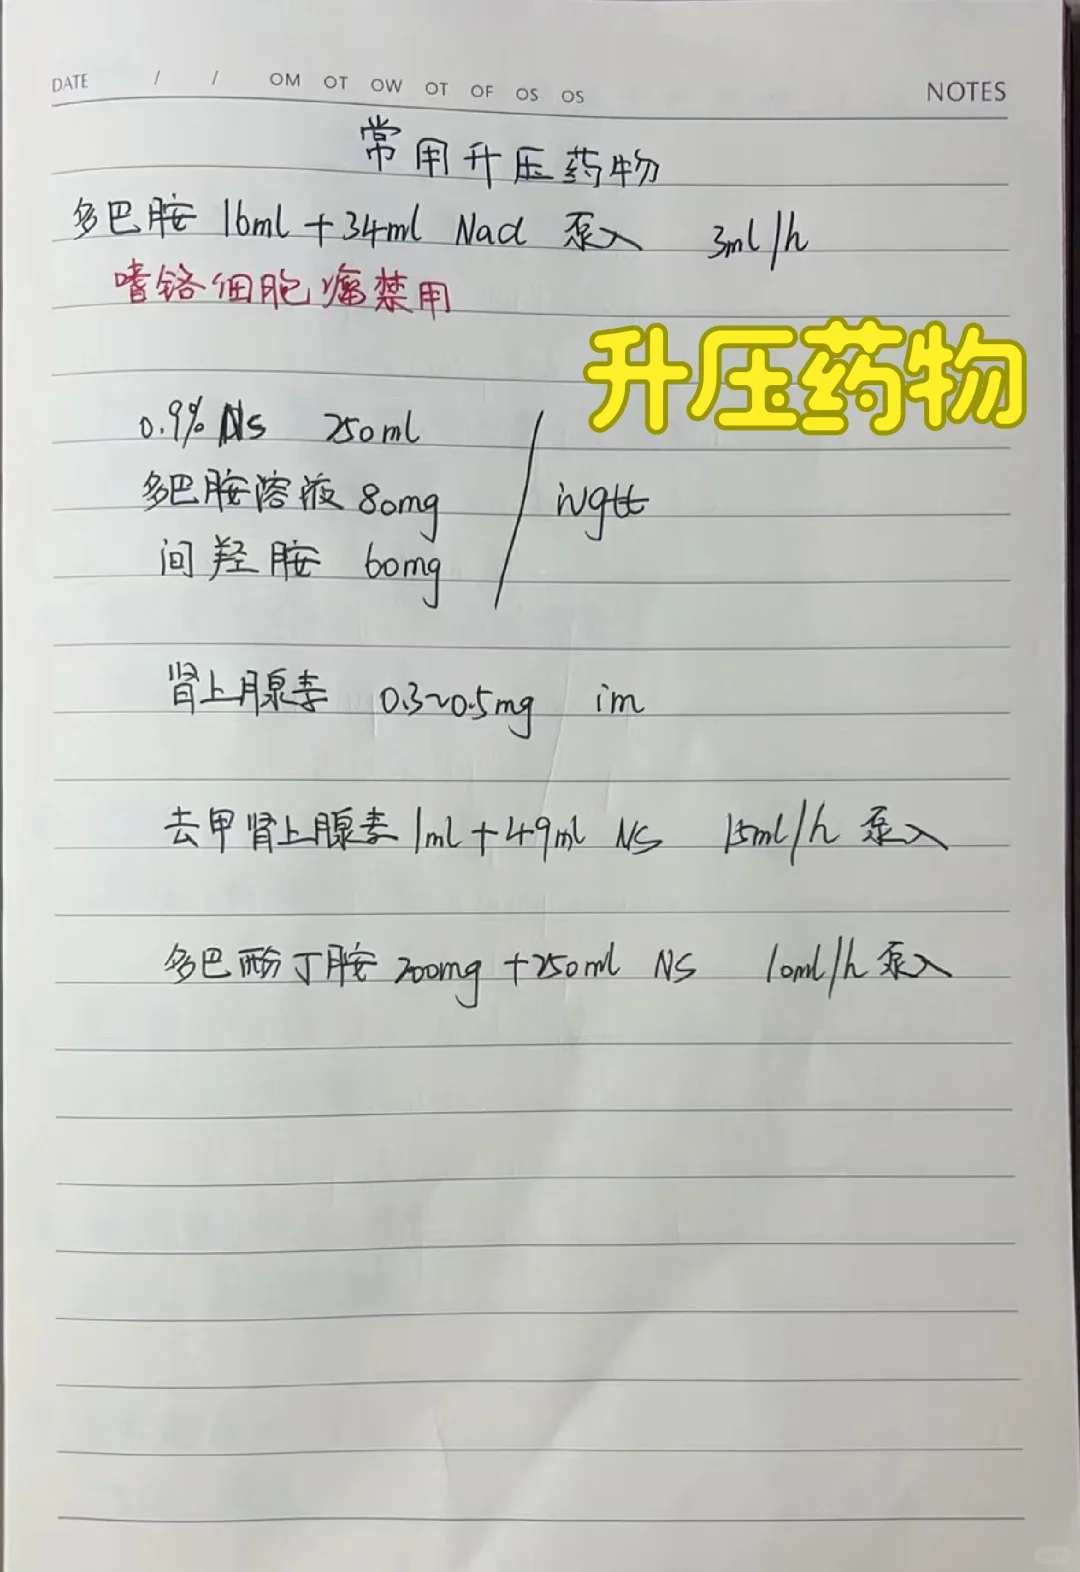 DATE / / OM OT OW OT OF OS OS NOTES
常用升压药物
多巴胺 16ml+34ml Nacl 泵入 3ml/h
嗜铬细胞瘤禁用
升压药物
0.9% NS 250ml
多巴胺溶液 80mg ivgtt
间羟胺 60mg
肾上腺素 0.3~0.5mg im
去甲肾上腺素 1ml+49ml NS 15ml/h 泵入
多巴酚丁胺 200mg+250ml NS 10ml/h 泵入